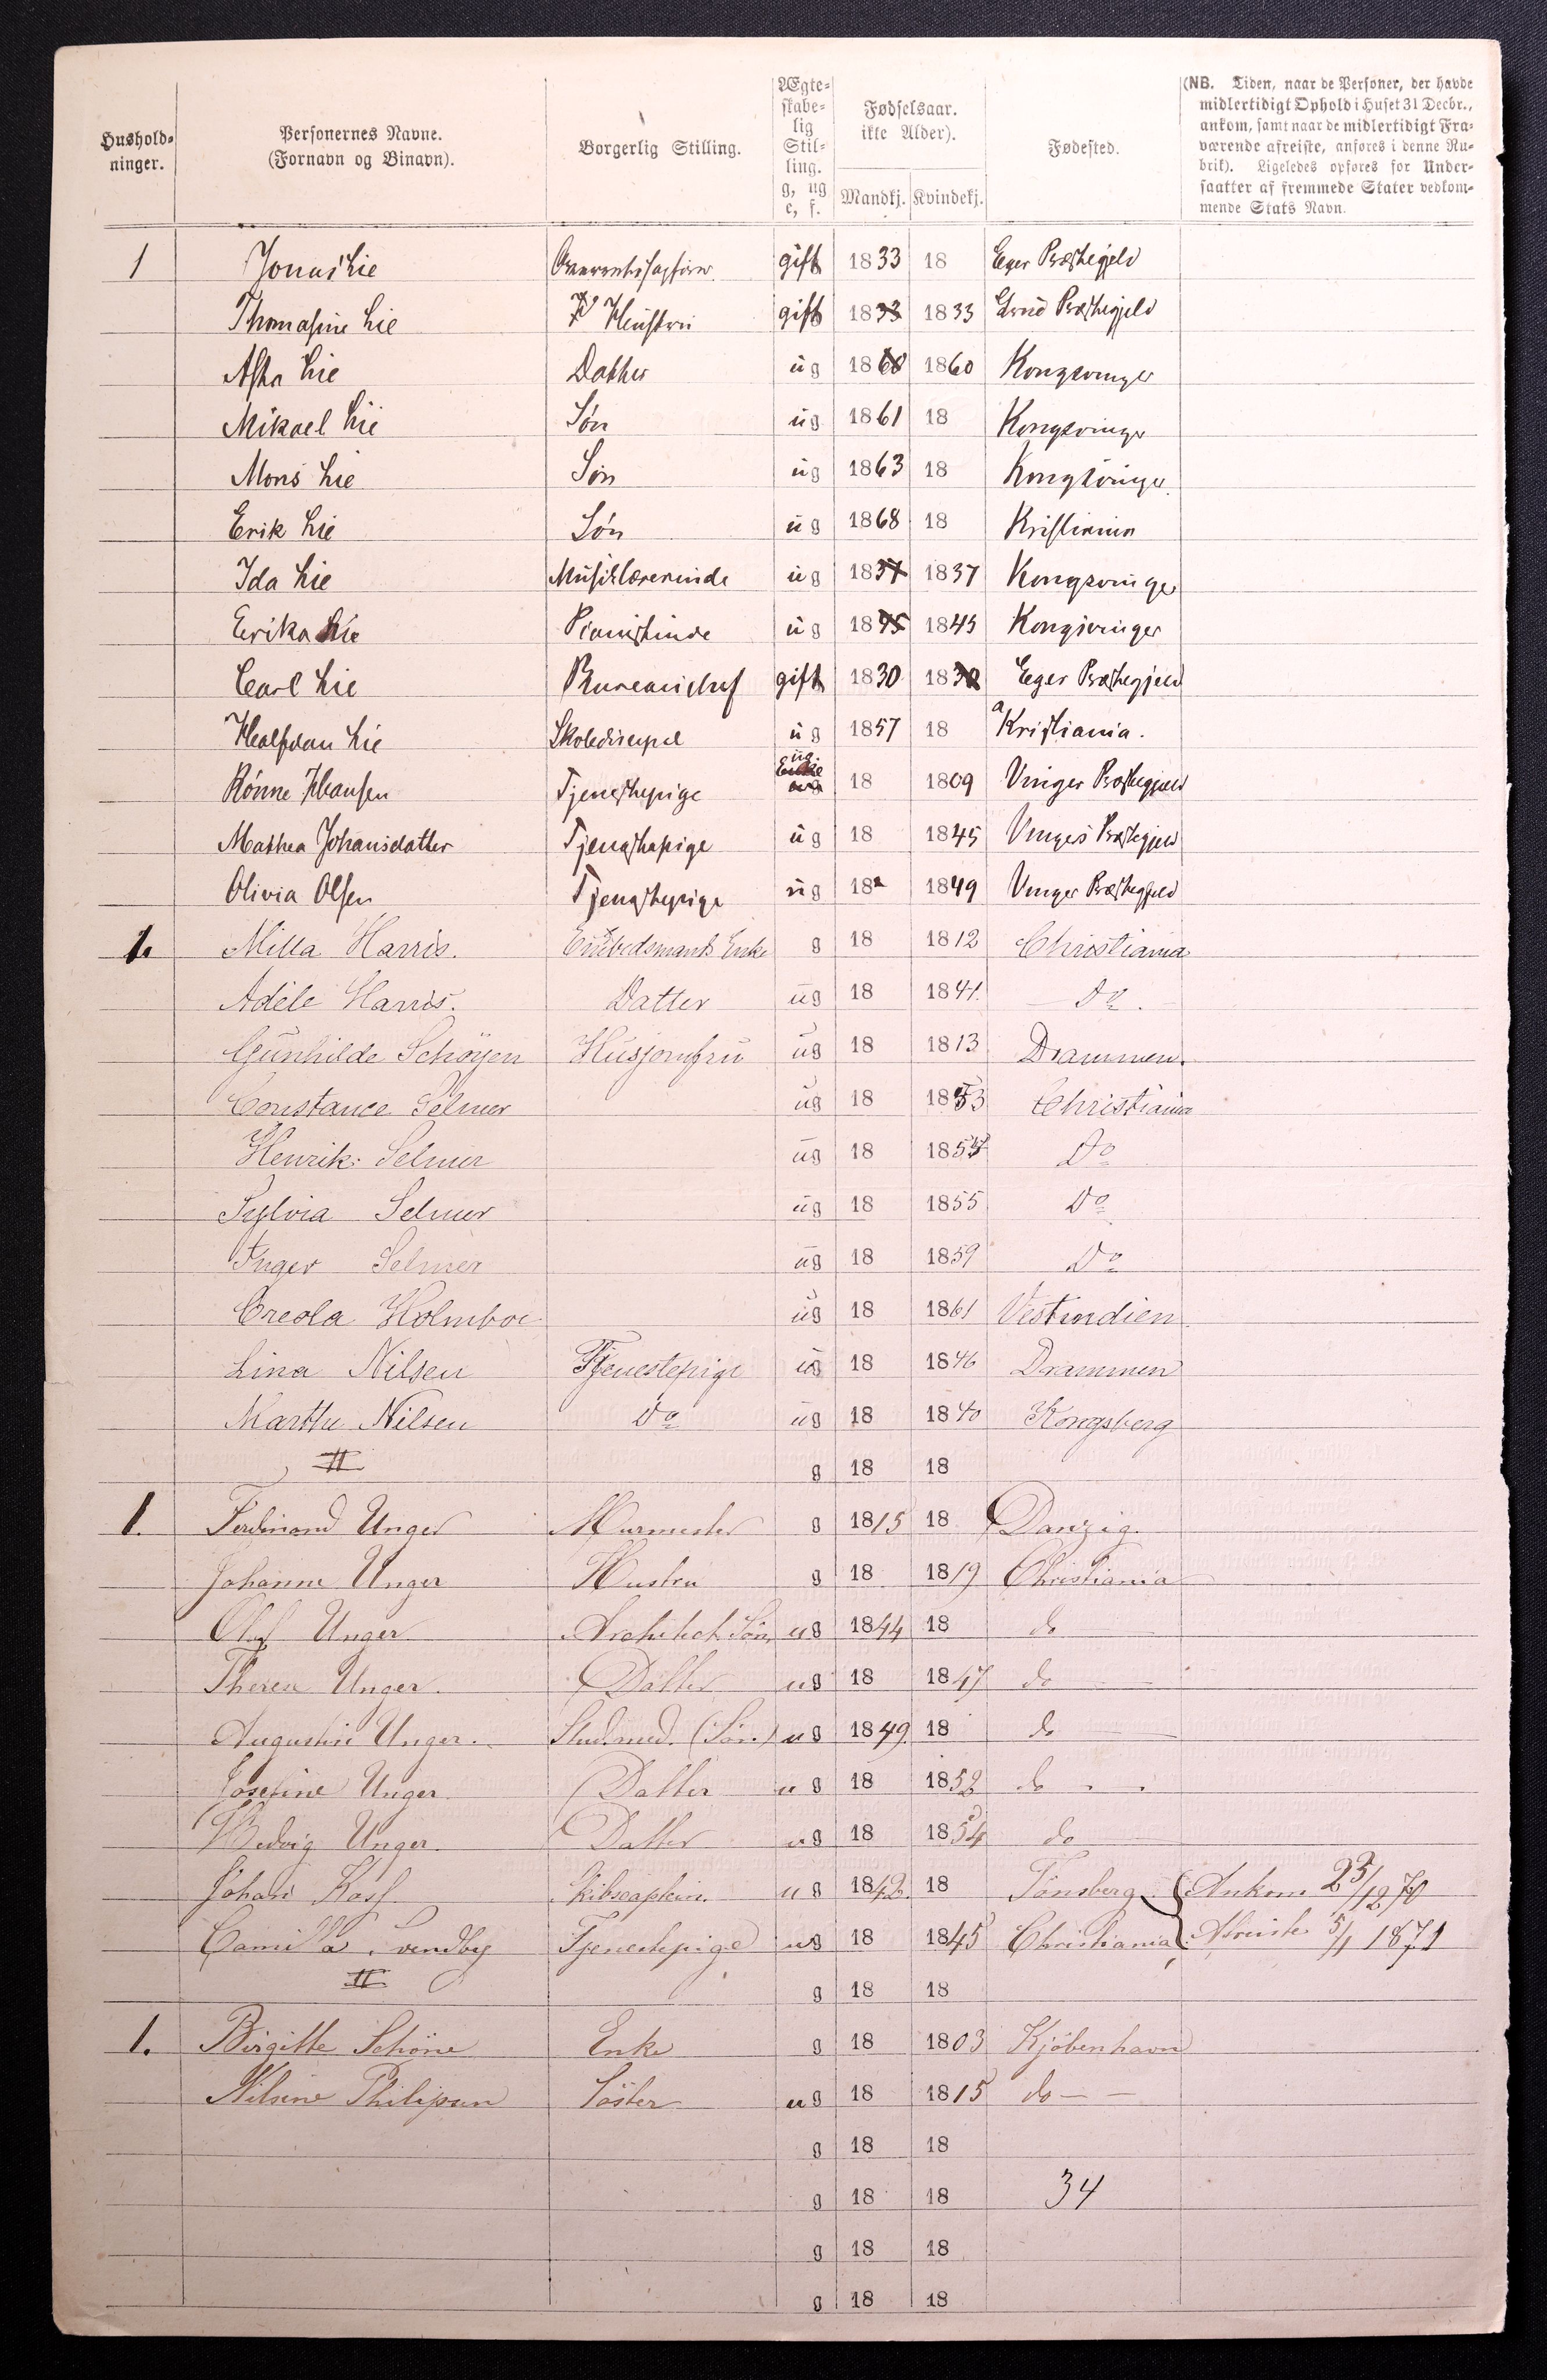 Hushold-
ninger.
Personernes Navne.
(Fornavn og Binavn).
Borgerlig Stilling.
Ægte-
skabe-
lig
Stil-
ling.
g, ug
e, f.
Fødselsaar.
ikke Alder).
Mandkj. Kvindekj.
Fødested.
(NB. Tiden, naar de Personer, der havde
midlertidigt Ophold i Huset 31 Decbr.,
ankom, samt naar de midlertidigt Fra-
værende afreiste, anføres i denne Ru-
brik). Ligeledes opføres for Under-
saatter af fremmede Stater vedkom-
mende Stats Navn.
1 Jonas Lie gift 1833 18 Eger Præstegjeld
Thomasine Lie Hustru gift 1833 1833 Præstegjeld
Asta Lie Datter ug 1860 1860 Kongsvinger
Mikael Lie Søn ug 1861 18 Kongsvinger
Mons Lie Søn ug 1863 18 Kongsvinger
Erik Lie Søn ug 1868 18 Kristiania
Ida Lie Musiklærerinde ug 1837 1837 Kongsvinger
Erika Lie Pianistinde ug 1845 1845 Kongsvinger
Carl Lie Bureauchef gift 1830 1830 Eger Præstegjeld
Halfdan Lie Skolediscipel ug 1857 18 Kristiania.
Rønne Hansen Tjenestepige ug. Enke ug 18 1809 Vinger Præstegjeld
Mathea Johansdatter Tjenestepige ug 18 1845 Vinger Præstegjeld
Olivia Olsen Tjenestepige ug 18 1849 Vinger Præstegjeld
1. Milla Harris. Embedsmands Enke g 18 1812 Christiania
Adéle Harris. Datter ug 18 1841. Do.
Gunhilde Schöyen Husjomfru ug 18 1813 Drammen.
Constance Selmer ug 18 1853 Christiania
Henrik Selmer ug 18 185 Do
Sylvia Selmer ug 18 1855 Do
Inger Selmer ug 18 1859 Do
Creola Holmboe ug 18 1861 Vestindien
Lina Nilsen Tjenestepige ug 18 1846 Drammen
Marthe Nilsen Do ug 18 1840 Kongsberg
g 18 18
1. Ferdinand Unger Murmester g 1815 18 Danzig.
Johanne Unger Hustru g 18 1819 Christiania
Olaf Unger Architect Søn ug 1844 18 do
Therese Unger. Datter ug 18 1847 do
Augustin Unger. Stud. med. (Søn.) ug 1849. 18 do
Josefine Unger Datter ug 18 1852 do
Hedvig Unger. Datter ug 18 1854 do
Johan Skibscaptein. ug 1842. 18 Tønsberg. Ankom 23/12 70
Camilla Svendby Tjenestepige ug 18 1845 Christiania Afreiste 5/1 1871
II
g 18 18
1. Birgitte Schöne Enke g 18 1803 Kjøbenhavn
Nilsine Philipsen Søster ug 18 1815 do
g 18 18
g 18 18 34
g 18 18
g 18 18